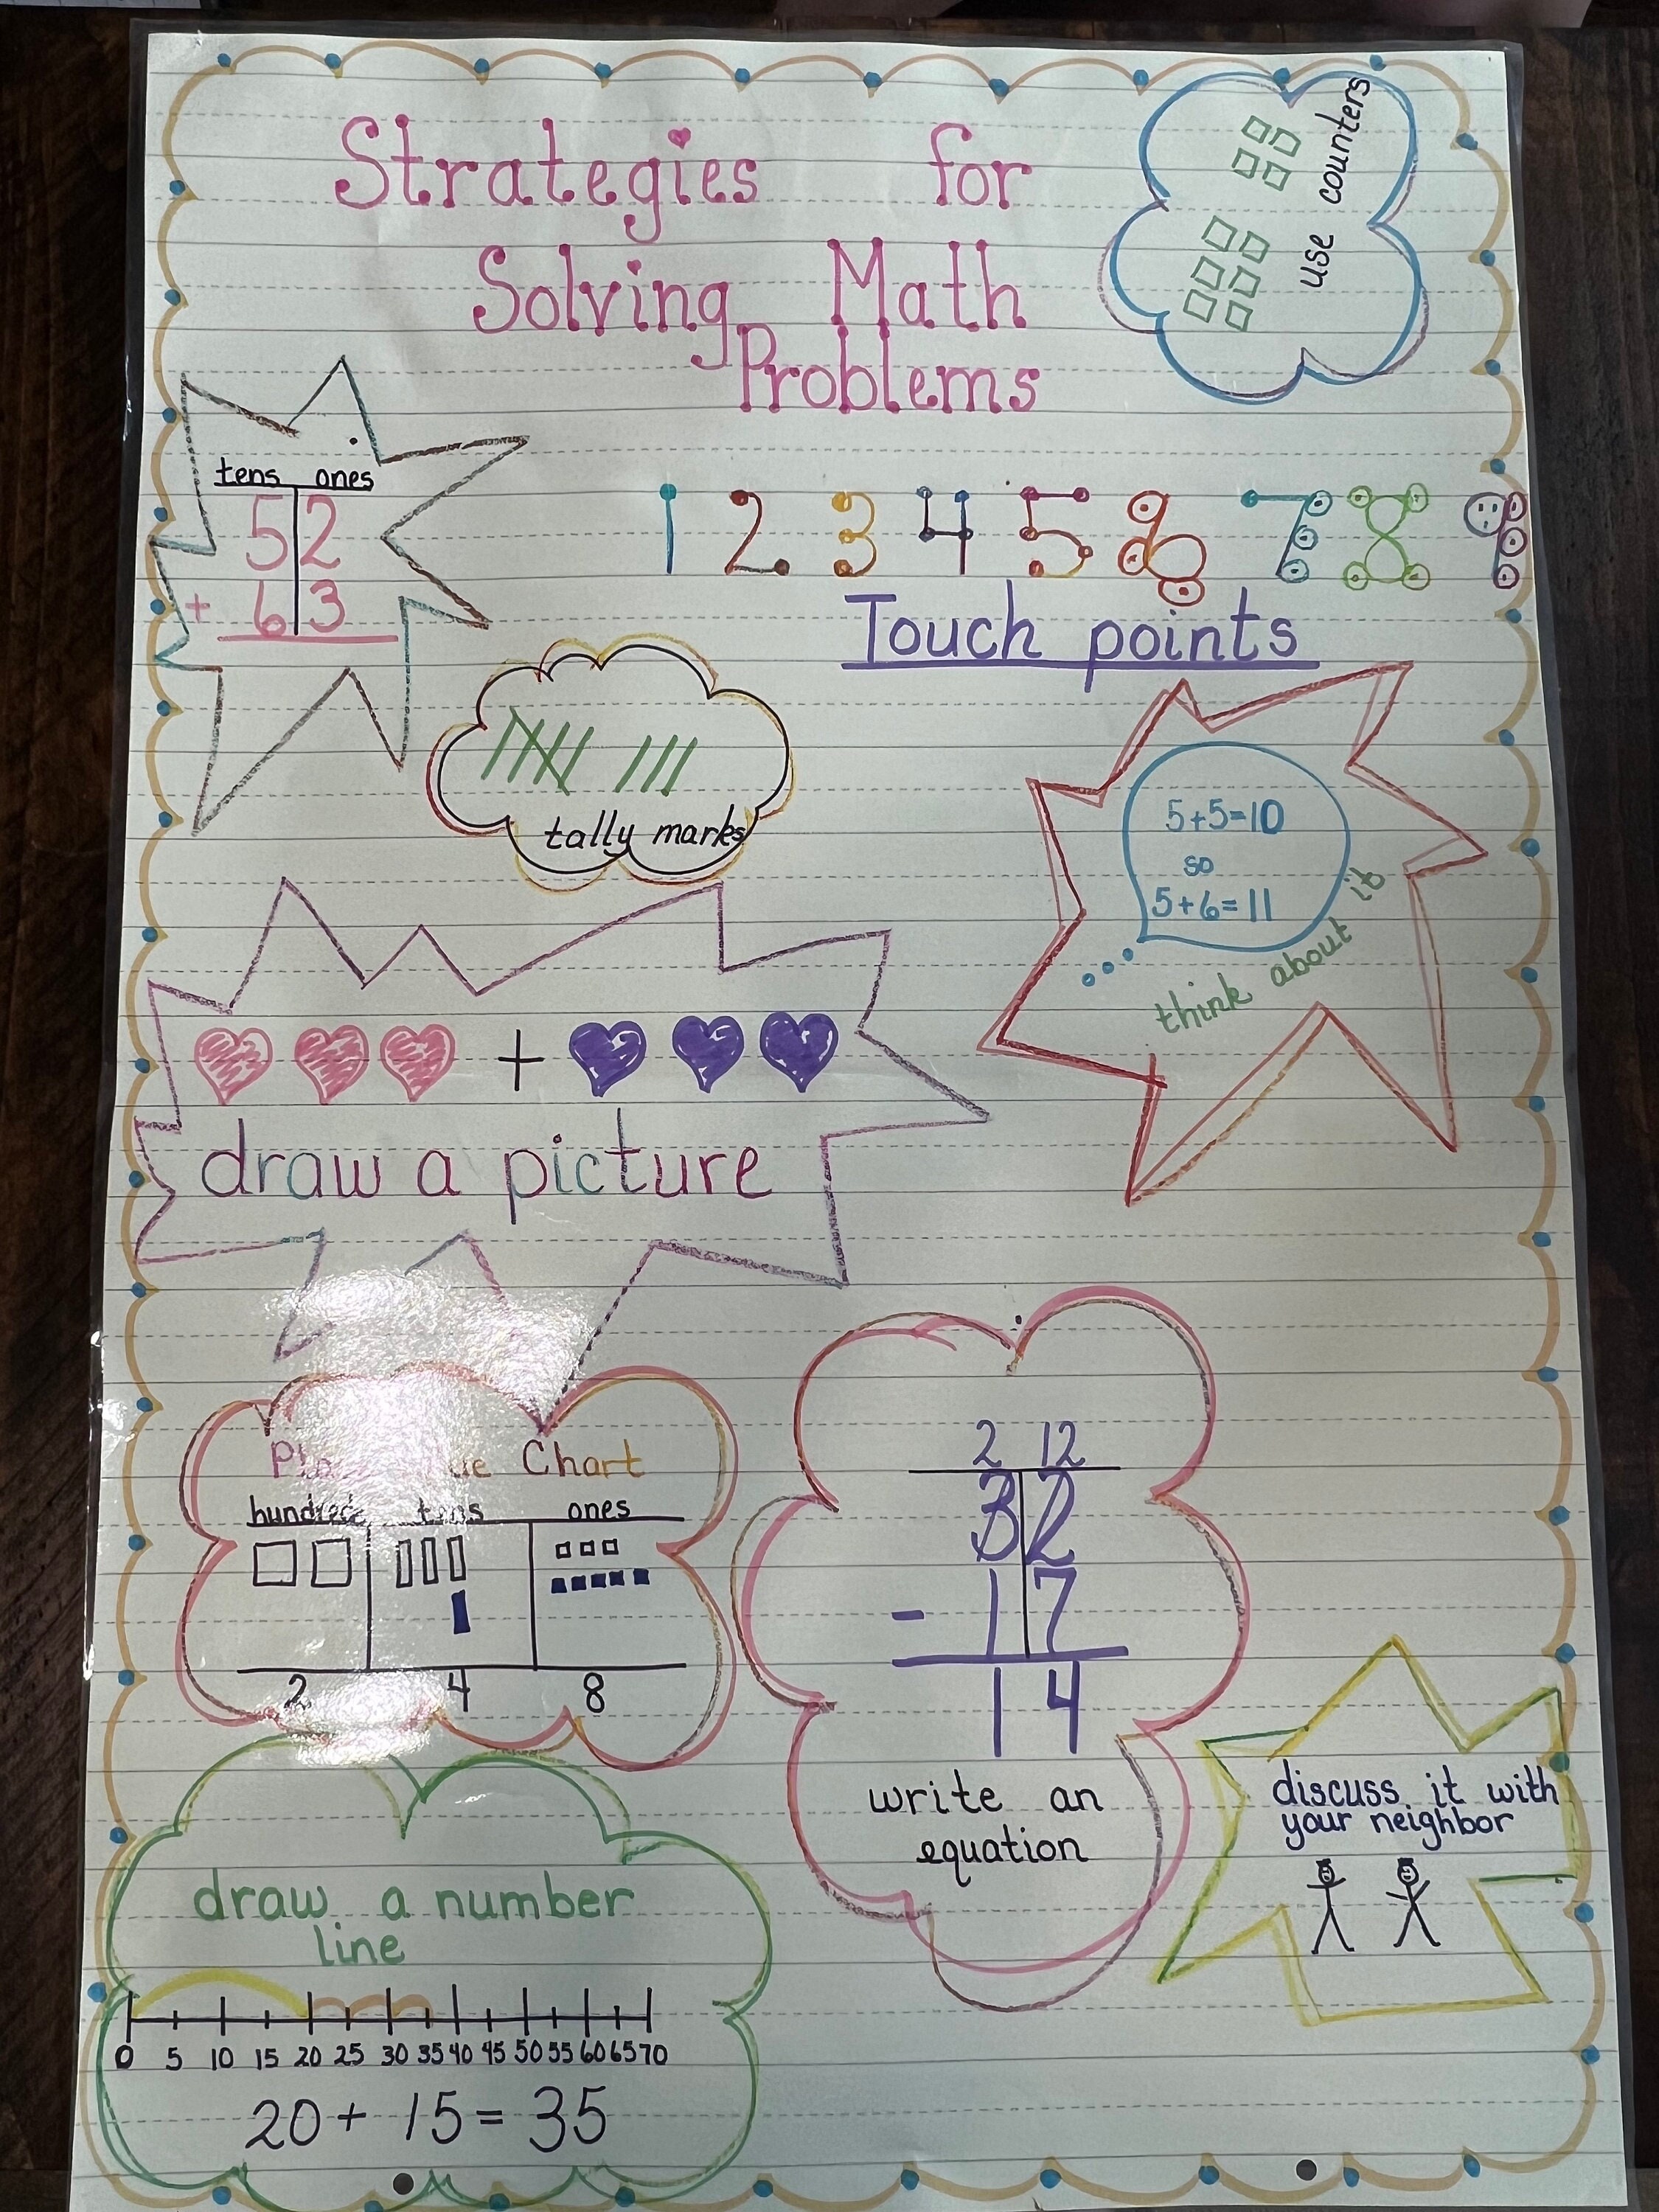 Strategies for
Solving Math
Problems
use counters
tens ones
52
+ 63
1 2 3 4 5 6 7 8 9
Touch points
tally marks
5+5=10
so
5+6=11
think about it
+
draw a picture
Chart
hundreds tens ones
2 4 8
2 12
32
- 17
14
write an
equation
discuss it with
your neighbor
draw a number
line
0 5 10 15 20 25 30 35 40 45 50 55 60 65 70
20 + 15 = 35